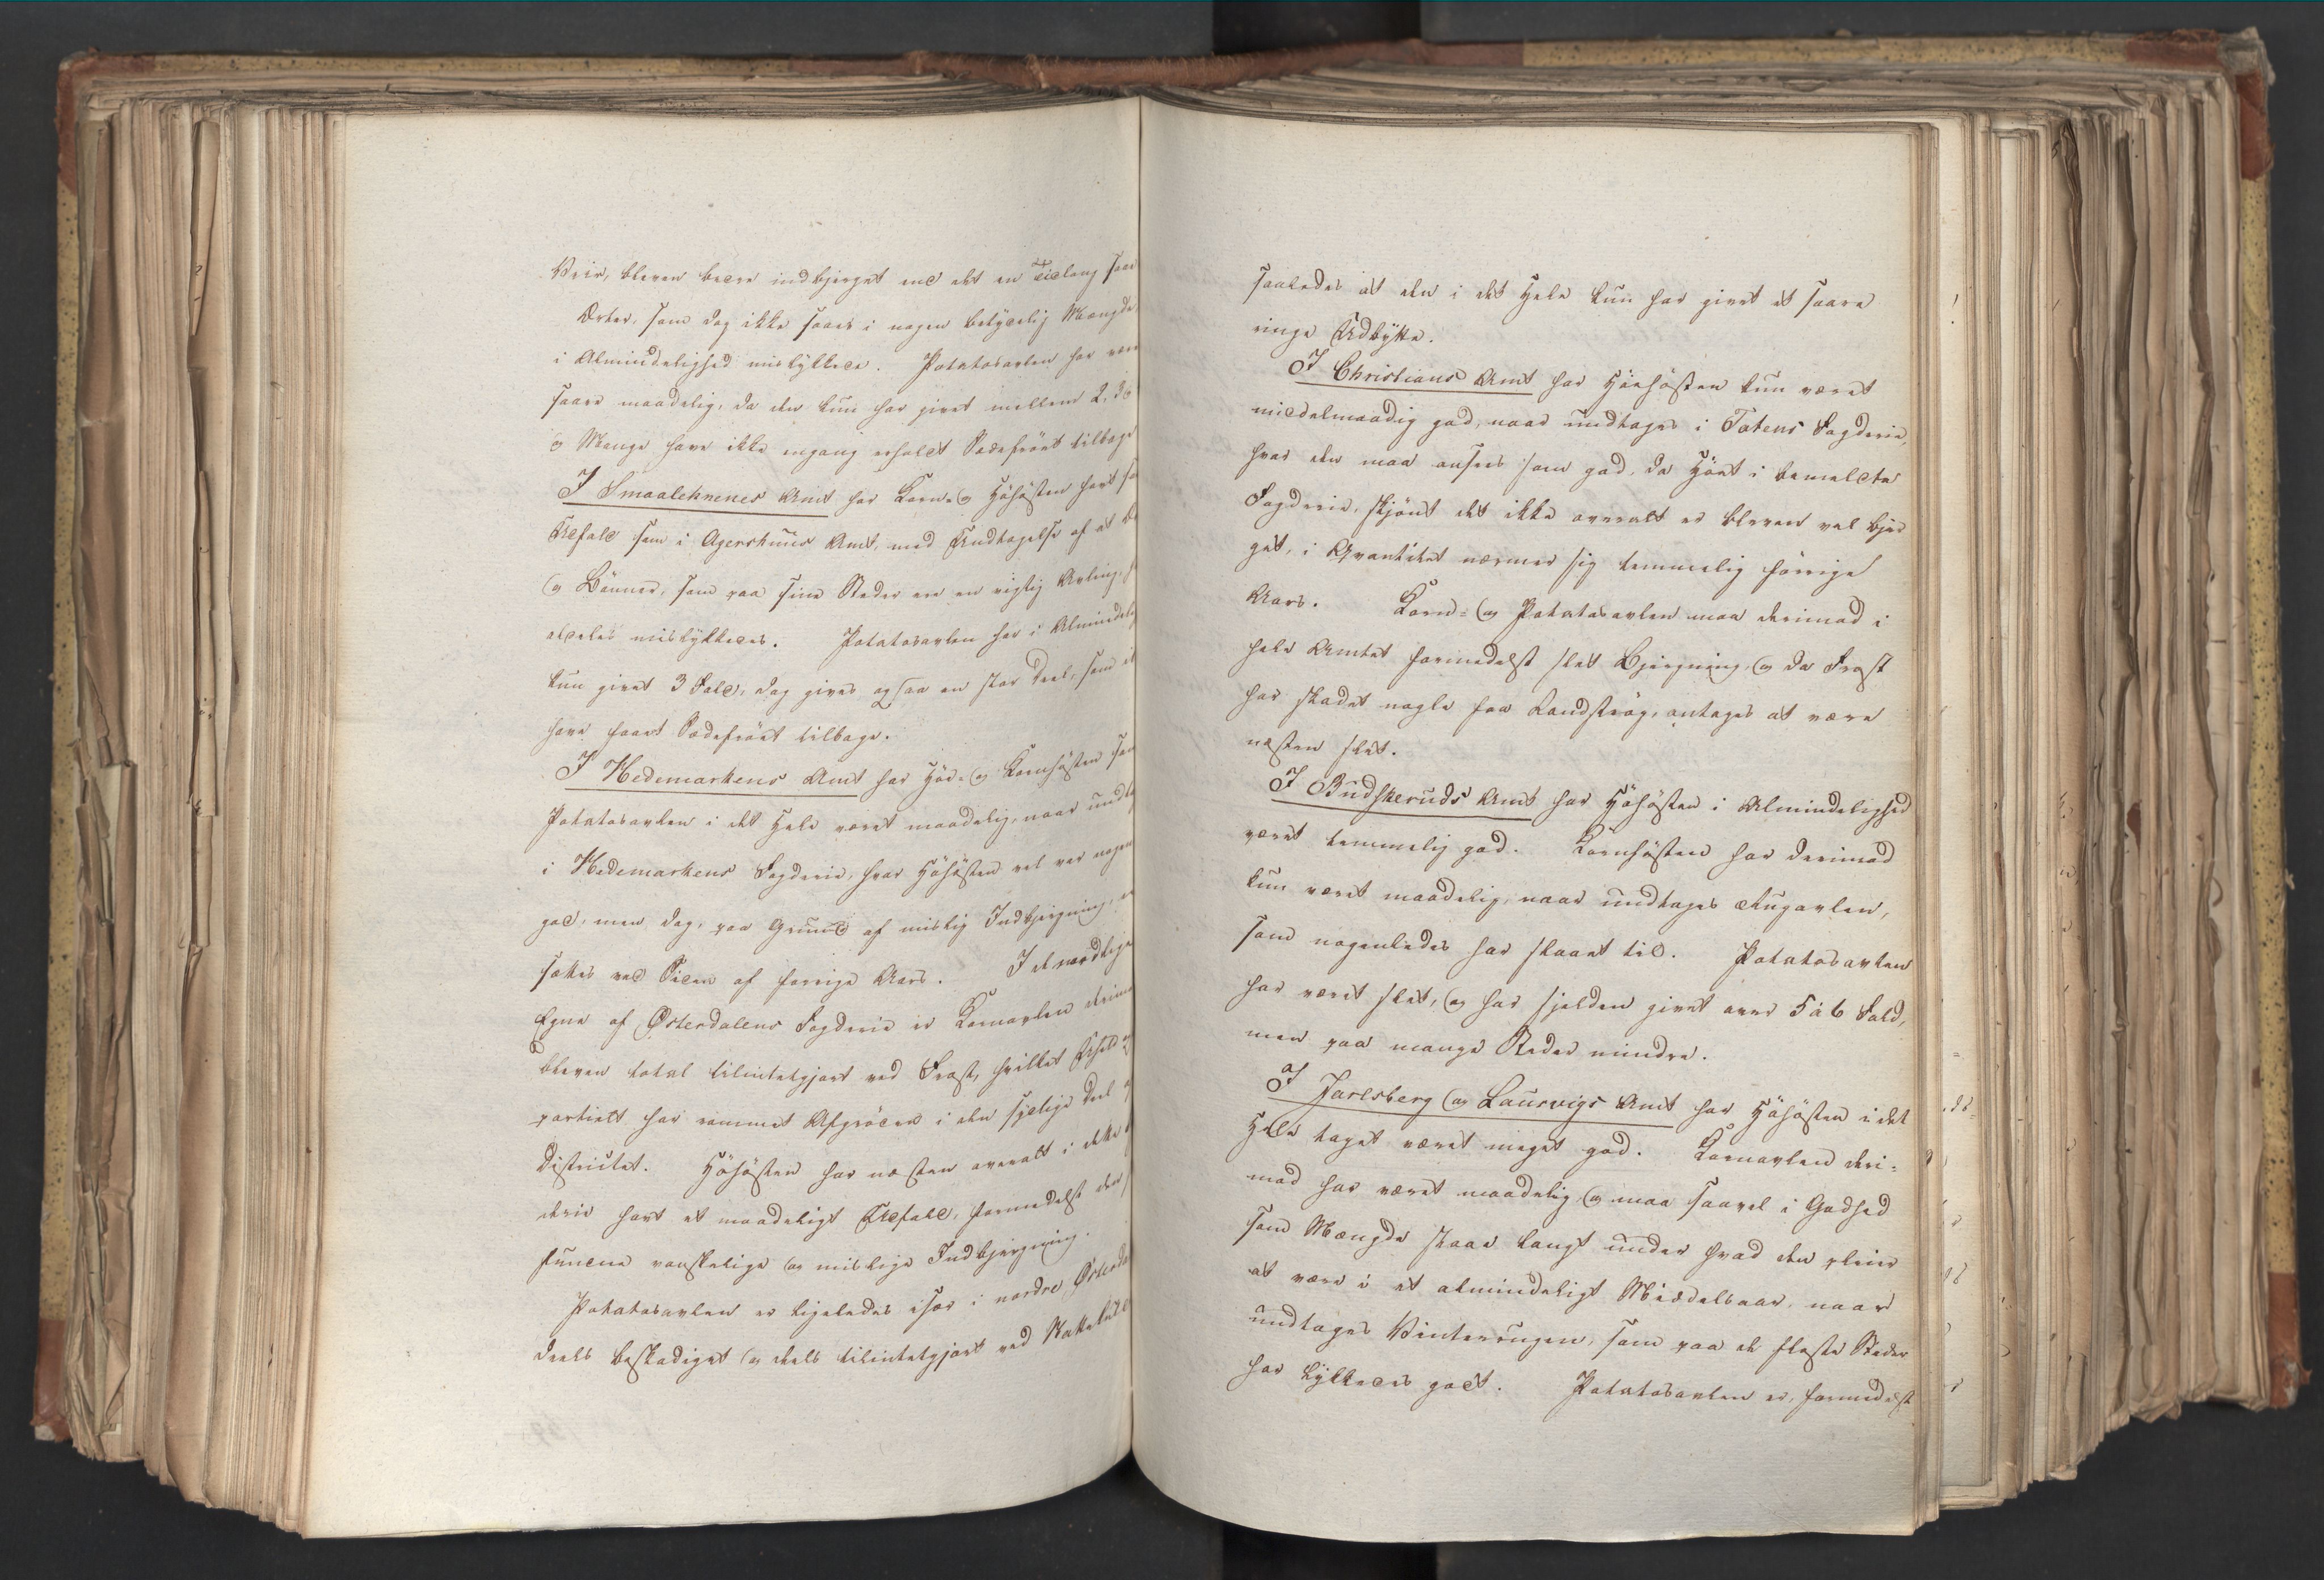 Veir, bleven bedre indbjerget end det en Tidlang saae
Erter, som dog ikke saaes i nogen betydelig Mængde,
i Almindelighed mislykkede. Potatosavlen har være
saare maadelig, da den kun har givet mellem 2, 3 à
og Mange have ikke engang erholdt Sædefröet tilbage
I Smaalehnenes Amt har Korn- og Höhösten havt sa
Udfald som i Agershuus Amt, med Undtagelse af at
og Bönner, som paa sine Steder ere en vigtig Avling,
aldeles mislykkedes. Potatosavlen har i Almindelig
kun givet 3 Fold, dog gives ogsaa en stor Deel, som ei
have faaet Sædefröet tilbage.
I Hedemarkens Amt har Höe- og Kornhösten sam
Potatosavlen i det Hele været maadelig, naar undta
i Hedemarkens Fogderie, hvor Höhösten vel var nogen
god, men dog, paa Grund af mislig Indbjergning,
sættes ved Siden af forrige Aars. I de nordlige
Egne af Østerdalens Fogderie er Kornavlen derimo
bleven total tilintetgjort ved Frost, hvilket Uheld og
partielt har rammet Afgröden i den sydlige Deel af
Districtet. Höhösten har næsten overalt i dette
derie havt et maadeligt Udfald, formedelst den
fundne vanskelige og mislige Indbjergning.
Potatosavlen er ligeledes især i nordre Østerda
deels beskadiget og deels tilintetgjort ved Nattekulde
saaledes at den i det Hele kun har givet et saare
ringe Udbytte.
I Christians Amt har Höehösten kun været
middelmaadig god, naar undtages i Totens Fogderie,
hvor den maa ansees som god, da Höet i bemeldte
Fogderie, skjönt det ikke overalt er bleven vel bjer
get, i Qvantitet nærmer sig temmelig forrige
Aars. Korn- og Potatosavlen maa derimod i
hele Amtet formedelst slet Bjergning, og da Frost
har skadet nogle faa Landströg, antages at være
næsten slet.
I Budskeruds Amt har Höhösten i Almindelighed
været temmelig god. Kornhösten har derimod
kun været maadelig, naar undtages Rugavlen,
som nogenledes har slaaet til. Potatosavlen
har været slet, og har sjelden givet over 5 à 6 Fold,
men paa mange Steder mindre.
I Jarlsberg og Laurvigs Amt har Höhösten i det
Hele taget været meget god. Kornavlen deri-
mod har været maadelig og maa saavel i Godhed
som Mængde staae langt under hvad den pleier
at være i et almindeligt Middelsaar, naar
undtages Vinterrugen, som paa de fleste Steder
har lykkedes godt. Potatosavlen er, formedelst